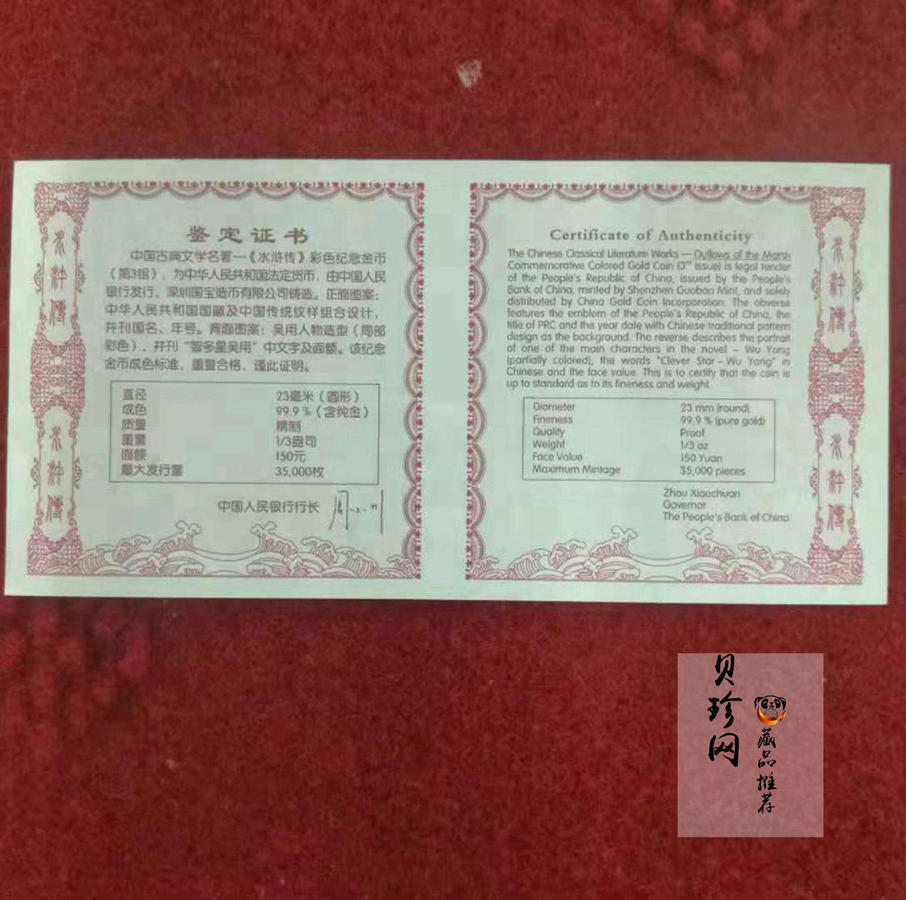 鉴定证书
中国古典文学名著—《水浒传》彩色纪念金币
（第3组），为中华人民共和国法定货币，由中国人民
银行发行，深圳国宝造币有限公司铸造。正面图案：
中华人民共和国国徽及中国传统纹样组合设计，
并刊国名、年号。背面图案：吴用人物造型（局部
彩色），并刊“智多星吴用”中文字及面额。该纪念
金币成色标准，重量合格，谨此证明。
直径 23毫米（圆形）
成色 99.9％（含纯金）
质量 精制
重量 1/3盎司
面额 150元
最大发行量 35,000枚
中国人民银行行长
水浒传
水浒传
Certificate of Authenticity
The Chinese Classical Literature Works — Outlaws of the Marsh
Commemorative Colored Gold Coin (3rd Issue) is legal tender
of the People's Republic of China, issued by the People's
Bank of China, minted by Shenzhen Guobao Mint, and solely
distributed by China Gold Coin Incorporation. The obverse
features the emblem of the People's Republic of China, the
title of PRC and the year date with Chinese traditional pattern
design as the background. The reverse describes the portrait
of one of the main characters in the novel – Wu Yong
(partially colored), the words "Clever Star – Wu Yong" in
Chinese and the face value. This is to certify that the coin is
up to standard as to its fineness and weight.
Diameter 23 mm (round)
Fineness 99.9 % (pure gold)
Quality Proof
Weight 1/3 oz
Face Value 150 Yuan
Maximum Mintage 35,000 pieces
Zhou Xiaochuan
Governor
The People's Bank of China
水浒传
水浒传
贝珍网
藏品推荐